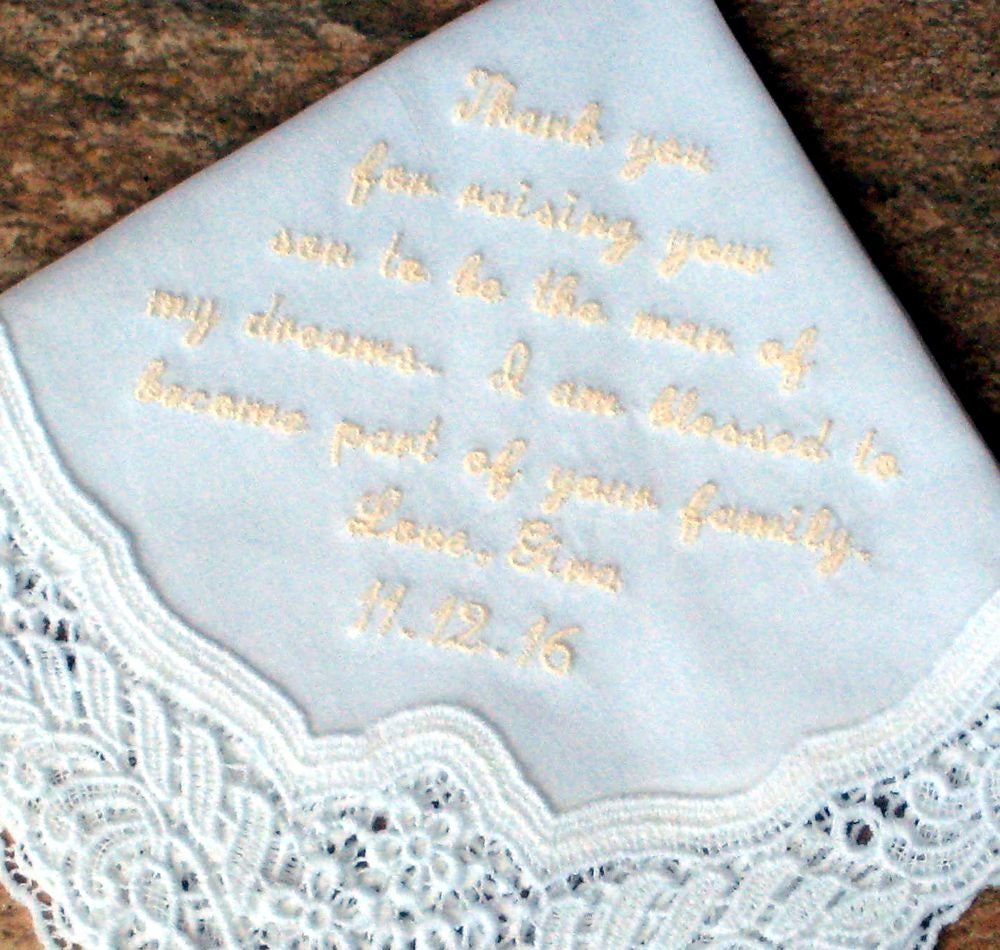 Thank you
for raising your
son to be the man of
my dreams. I am blessed to
become part of your family.
Love, Gina
11.12.16